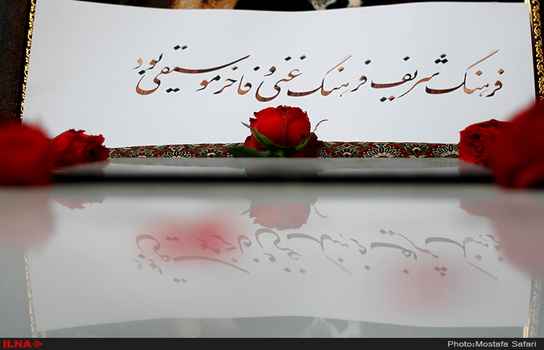 فرهنگ شریف فرهنگ غنی و فاخر موسیقی بود
ILNA
Photo:Mostafa Safari